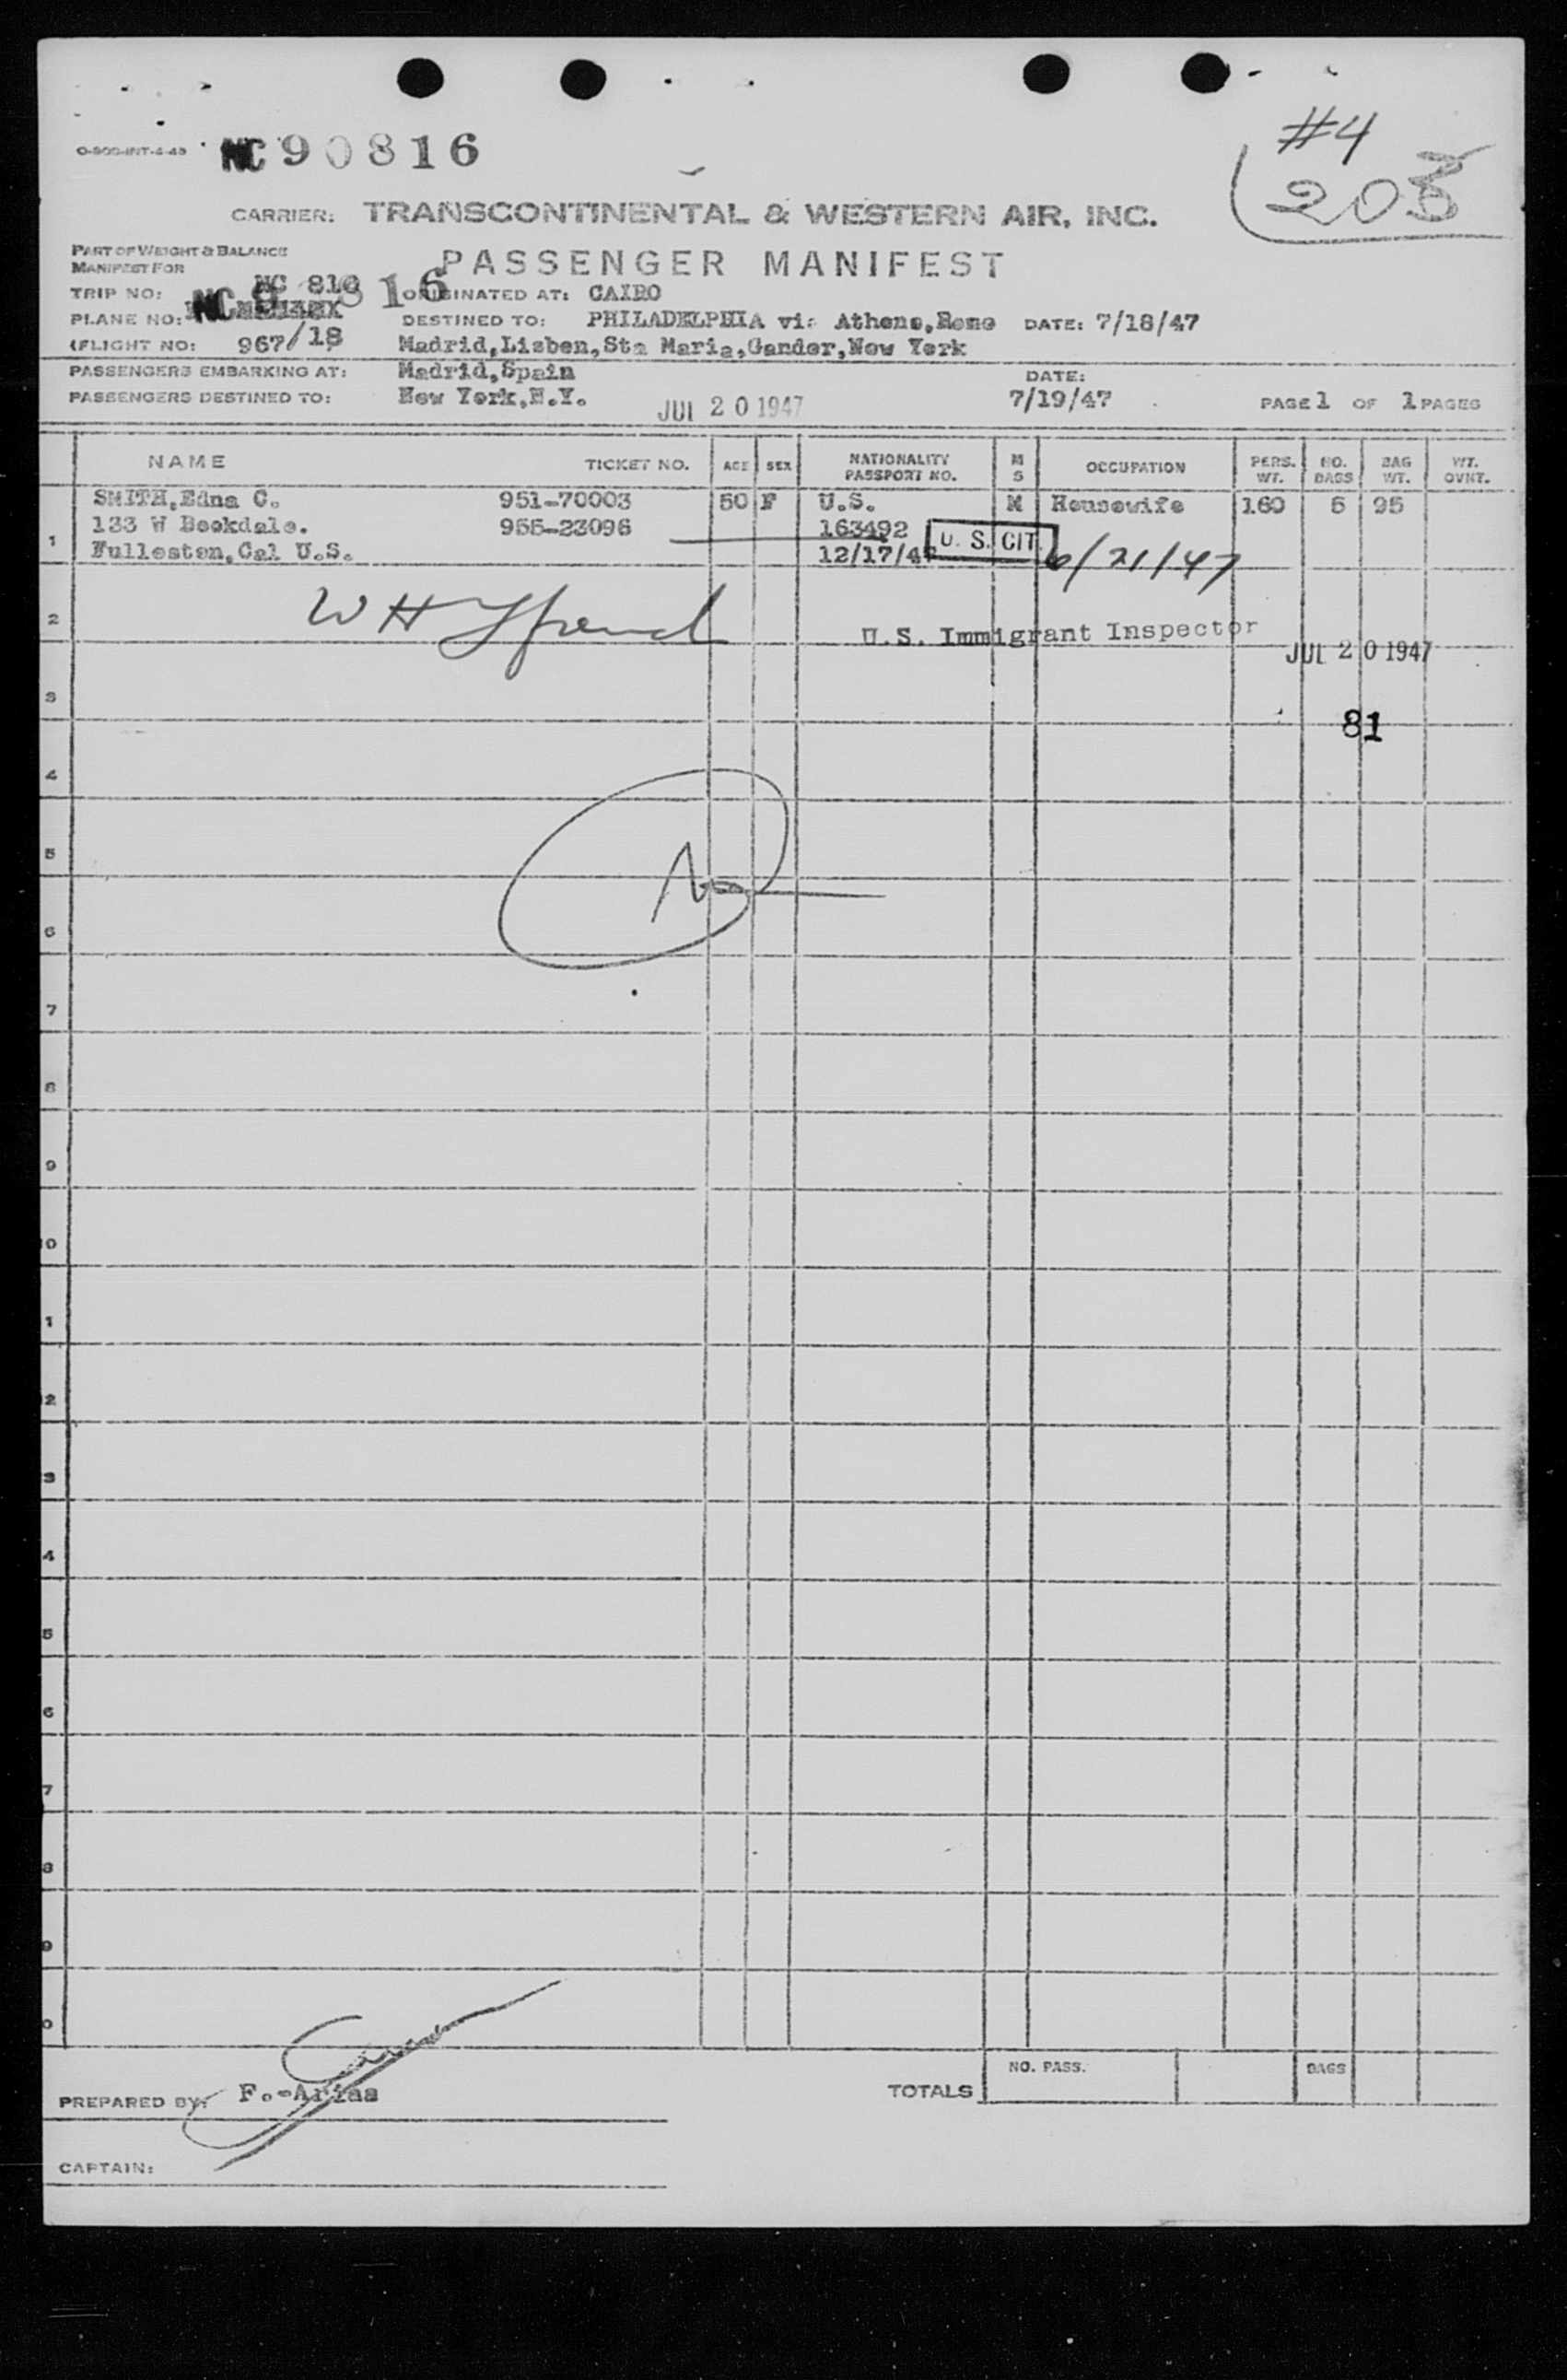 #4
O-800-INT-4-45 NC 90816
205
CARRIER: TRANSCONTINENTAL & WESTERN AIR, INC.
PART OF WEIGHT & BALANCE
MANIFEST FOR
PASSENGER MANIFEST
TRIP NO: NC 816 ORIGINATED AT: CAIRO
PLANE NO: DESTINED TO: PHILADELPHIA via Athens,Rome DATE: 7/18/47
(FLIGHT NO: 967/18 Madrid,Lisbon,Sta Maria,Gander,New York
PASSENGERS EMBARKING AT: Madrid,Spain DATE:
PASSENGERS DESTINED TO: New York,N.Y. JUL 20 1947 7/19/47 PAGE 1 OF 1 PAGES
NAME TICKET NO. AGE SEX NATIONALITY PASSPORT NO. M S OCCUPATION PERS. WT. NO. BAGS BAG WT. WT. OVNT.
SMITH,Edna C. 951-70003 50 F U.S. M Housewife 160 5 95
133 W Bookdale. 955-23096 163492 U. S. CIT.
1 Fulleston,Cal U.S. 12/17/4 6/21/47
2 W H U.S. Immigrant Inspector
JUL 20 1947
3
81
4
5
No
6
7
8
9
0
1
2
3
4
5
6
7
8
9
0
NO. PASS. BAGS
TOTALS
PREPARED BY: F.-Arias
CAPTAIN: